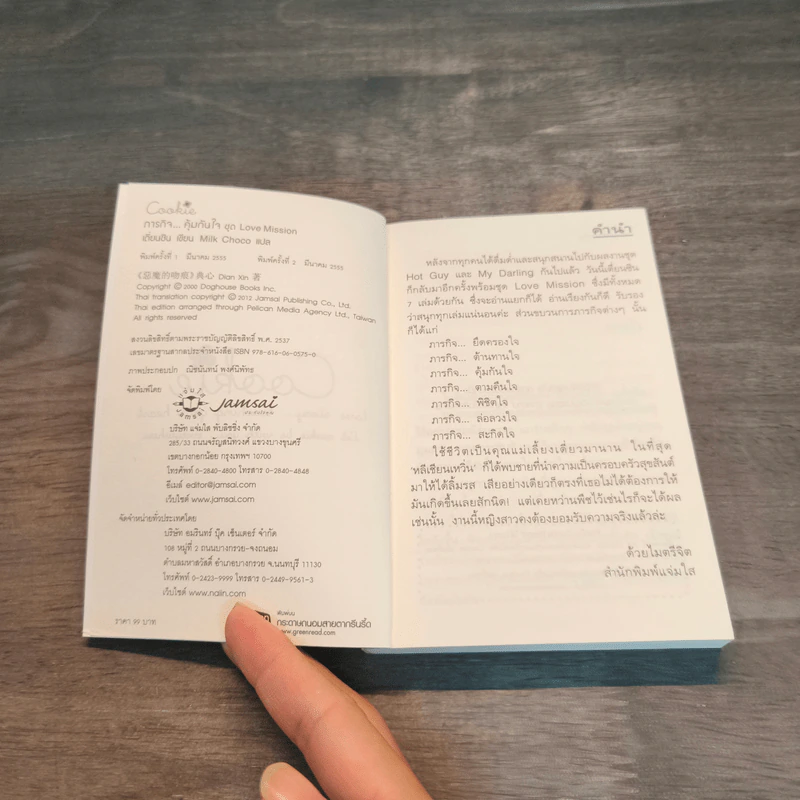 Cookie
ภารกิจ... คุ้มกันใจ ชุด Love Mission
เตี่ยนซิน เขียน Milk Choco แปล
พิมพ์ครั้งที่ 1 มีนาคม 2555 พิมพ์ครั้งที่ 2 มีนาคม 2555
《惡魔的吻痕》典心 Dian Xin 著
Copyright © 2000 Doghouse Books Inc.
Thai translation copyright © 2012 Jamsai Publishing Co., Ltd.
Thai edition arranged through Pelican Media Agency Ltd., Taiwan
All rights reserved
สงวนลิขสิทธิ์ตามพระราชบัญญัติลิขสิทธิ์ พ.ศ. 2537
เลขมาตรฐานสากลประจำหนังสือ ISBN 978-616-06-0575-0
ภาพประกอบปก ณิชนันทน์ พงศ์นิพัทธ
จัดพิมพ์โดย
แจ่มใส
jamsai
jamsai
บริษัท แจ่มใส พับลิชชิ่ง จำกัด
285/33 ถนนจรัญสนิทวงศ์ แขวงบางขุนศรี
เขตบางกอกน้อย กรุงเทพฯ 10700
โทรศัพท์ 0-2840-4800 โทรสาร 0-2840-4848
อีเมล์ editor@jamsai.com
เว็บไซต์ www.jamsai.com
จัดจำหน่ายทั่วประเทศโดย
บริษัท อมรินทร์ บุ๊ค เซ็นเตอร์ จำกัด
108 หมู่ที่ 2 ถนนบางกรวย-จงถนอม
ตำบลมหาสวัสดิ์ อำเภอบางกรวย จ.นนทบุรี 11130
โทรศัพท์ 0-2423-9999 โทรสาร 0-2449-9561-3
เว็บไซต์ www.naiin.com
ราคา 99 บาท
พิมพ์บน
กระดาษถนอมสายตากรีนรี้ด
www.greenread.com
คำนำ
หลังจากทุกคนได้ดื่มด่ำและสนุกสนานไปกับผลงานชุด
Hot Guy และ My Darling กันไปแล้ว วันนี้เตี่ยนซิน
ก็กลับมาอีกครั้งพร้อมชุด Love Mission ซึ่งมีทั้งหมด
7 เล่มด้วยกัน ซึ่งจะอ่านแยกก็ได้ อ่านเรียงกันก็ดี รับรอง
ว่าสนุกทุกเล่มแน่นอนค่ะ ส่วนขบวนการภารกิจต่างๆ นั้น
ก็ได้แก่
ภารกิจ... ยึดครองใจ
ภารกิจ... ต้านทานใจ
ภารกิจ... คุ้มกันใจ
ภารกิจ... ตามคืนใจ
ภารกิจ... พิชิตใจ
ภารกิจ... ล่อลวงใจ
ภารกิจ... สะกิดใจ
ใช้ชีวิตเป็นคุณแม่เลี้ยงเดี่ยวมานาน ในที่สุด
'หลีเชียนเหวิน' ก็ได้พบชายที่นำความเป็นครอบครัวสุขสันต์
มาให้ได้ลิ้มรส เสียอย่างเดียวก็ตรงที่เธอไม่ได้ต้องการให้
มันเกิดขึ้นเลยสักนิด! แต่เคยหว่านพืชไว้เช่นไรก็จะได้ผล
เช่นนั้น งานนี้หญิงสาวคงต้องยอมรับความจริงแล้วล่ะ
ด้วยไมตรีจิต
สำนักพิมพ์แจ่มใส